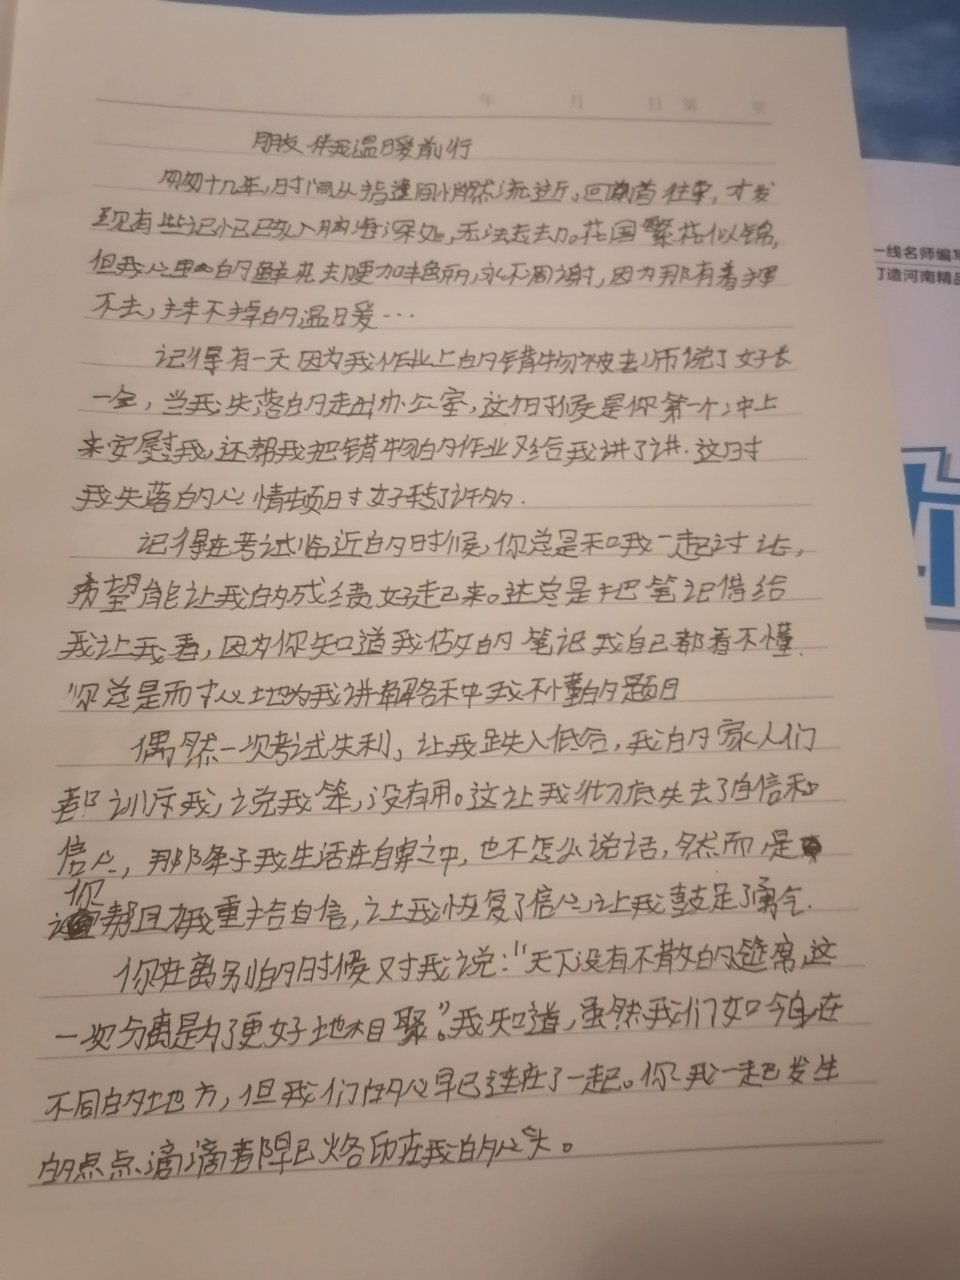 年 月 日 第 页
朋友 伴我温暖前行
匆匆十几年,时间从指缝间悄然流逝,回首往事,才发
现有些记忆已放入脑海深处,无法忘去了。花园繁花似锦,
但我心里的鲜花去更加鲜艳,永不凋谢,因为那有着挥
不去,抹不掉的温暖…
记得有一天因为我作业上的错物被老师说了好长
一会,当我失落的走出办公室,这时候是你第一个冲上
来安慰我,还帮我把错物的作业又给我讲了讲.这时
我失落的心情顿时好转了许多.
记得在考试临近的时候,你总是和我一起讨论,
希望能让我的成绩好起来。还总是把笔记借给
我让我看,因为你知道我做的笔记我自己都看不懂.
你总是而才心地为我讲解各种我不懂的题目
偶然一次考试失利,让我跌入低谷,我的家人们
都训斥我,说我笨,没有用。这让我彻底失去了自信和
信心,那阵子我生活在自卑之中,也不怎么说话,然而是
你
帮助我重拾自信,让我恢复了信心,让我鼓足了勇气.
你在离别的时候对我说:“天下没有不散的筵席,这
一次分离是为了更好地相聚。”我知道,虽然我们如今在
不同的地方,但我们的心早已连在了一起。你我一起发生
的点点滴滴都早已烙印在我的心头。
一线名师编写
打造河南精品